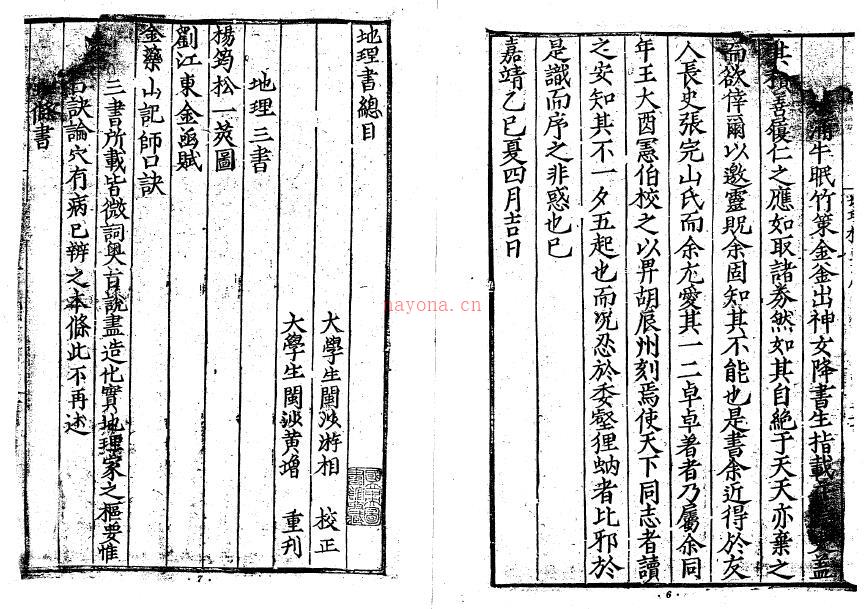 浦牛眠竹策金釜出神女降書生指載
積善復仁之應如取諸券然如其自絶于天天亦棄之
而欲倖爾以邀靈貺余固知其不能也是書余近得於友
人長史張完山氏而余尤愛其一二卓卓著者乃屬余同
年王大酉憲伯校之以畀胡辰州刻焉使天下同志者讀
之安知其不一夕五起也而况忍於委壑狸蚋者比邪於
是識而序之非惑也已
嘉靖乙巳夏四月吉日
·6·
地理書總目
大學生閩沙游相 校正
大學生閩沙黄增 重刊
地理三書
楊筠松一莢圖
劉江東金函賦
金藥山記師口訣
三書所載皆微詞奥旨説盡造化實地理家之樞要惟
口訣論穴有病已辨之本條此不再述
條書
·7·
nayona.cn